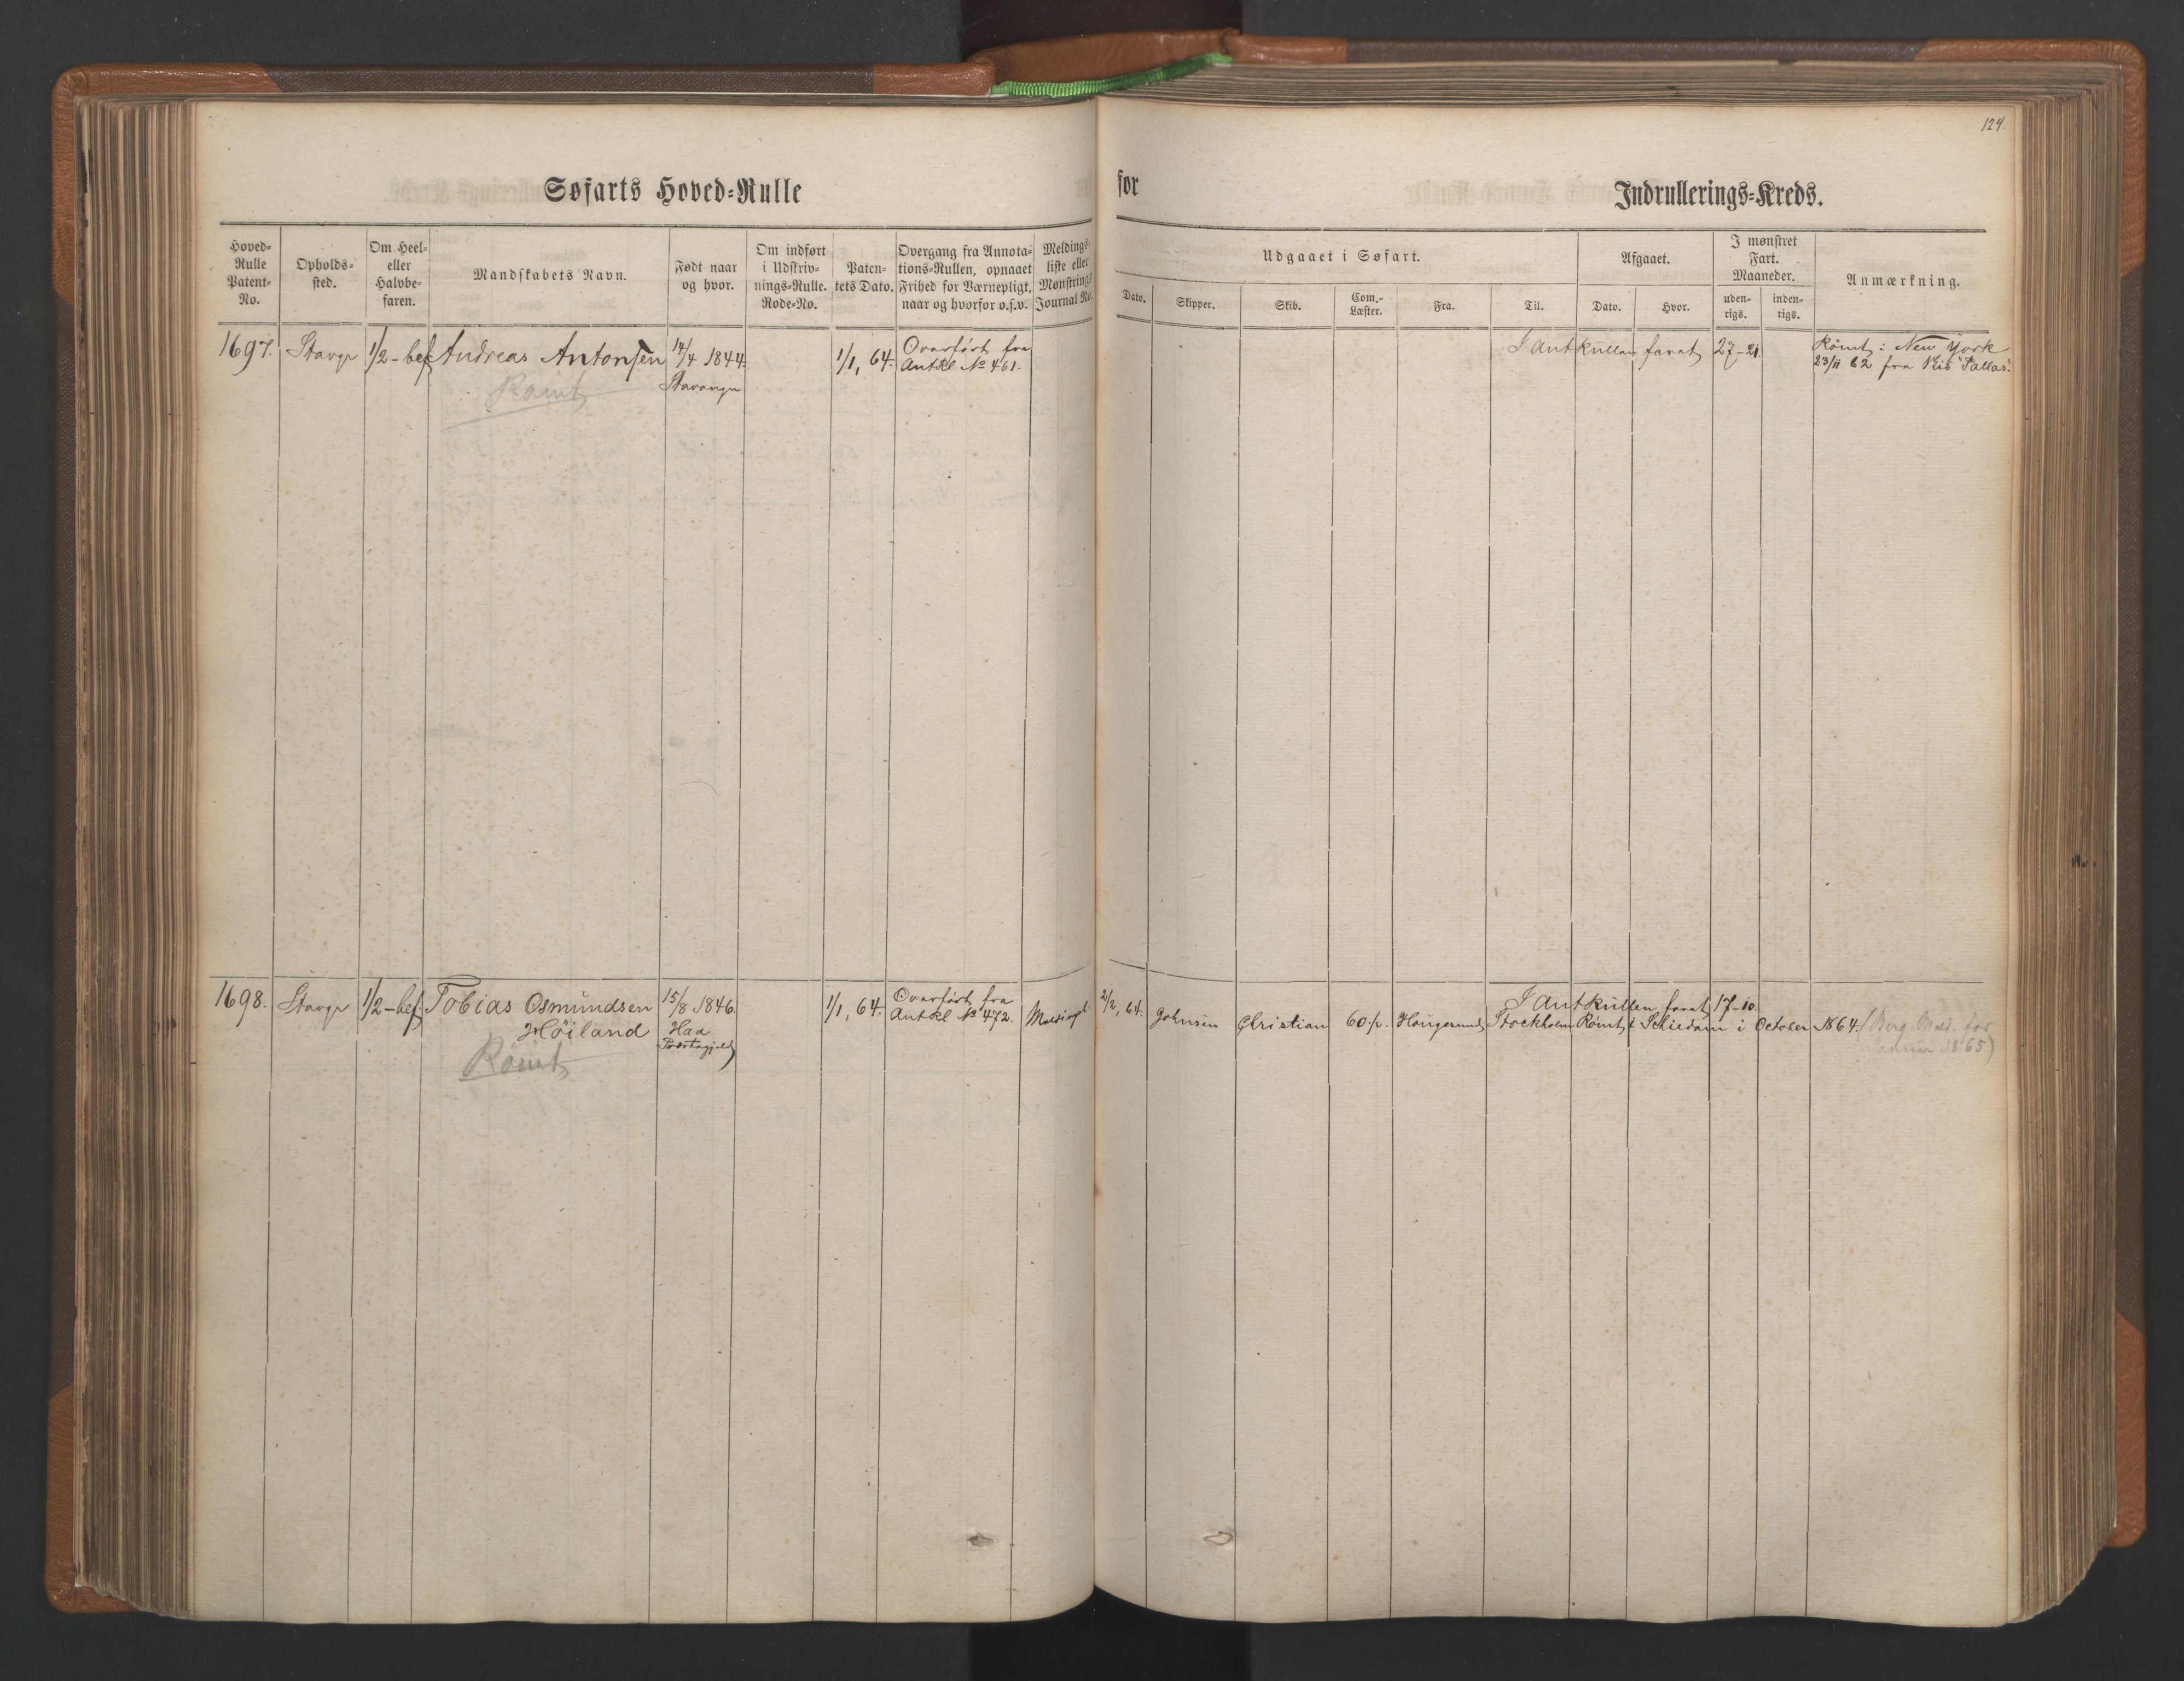 124.
Søfarts Hoved-Rulle for Indrullerings-Kreds.
Hoved-Rulle Patent-No.
Opholds-sted.
Om Heel- eller Halvbe-faren.
Mandskabets Navn.
Født naar og hvor.
Om indført i Udskriv-nings-Rulle. Rode-No.
Paten-tets Dato.
Overgang fra Annota-tions-Rullen, opnaaet Frihed for Værnepligt, naar og hvorfor o.s.v.
Meldings-liste eller Mønstrings Journal No.
Udgaaet i Søfart.
Dato.
Skipper.
Skib.
Com.-Læster.
Fra.
Til.
Afgaaet.
Dato.
Hvor.
I mønstret Fart. Maaneder.
uden-rigs.
inden-rigs.
Anmærkning.
1697. Stavgr 1/2-bef Andreas Antonsen 14/4 1844. 1/1, 64. Overført fra I Antrullen faret 27-21. Rømt i New York
Rømt Stavanger Antrl No 461. 23/11 62 fra Skib "Pallas".
1698. Stavgr 1/2-bef. Tobias Osmundsen 15/8 1846. 1/1, 64. Overført fra 2/2, 64. I Antrullen faret 17-10.
Høiland Haa Antrl No 472. Johnsen Christian 60 1/2. Haugesund Stockholm Rømt i Schiedam i October 1864. (Berg. Meld. for
Rømt Præstegjeld Januar 1865)